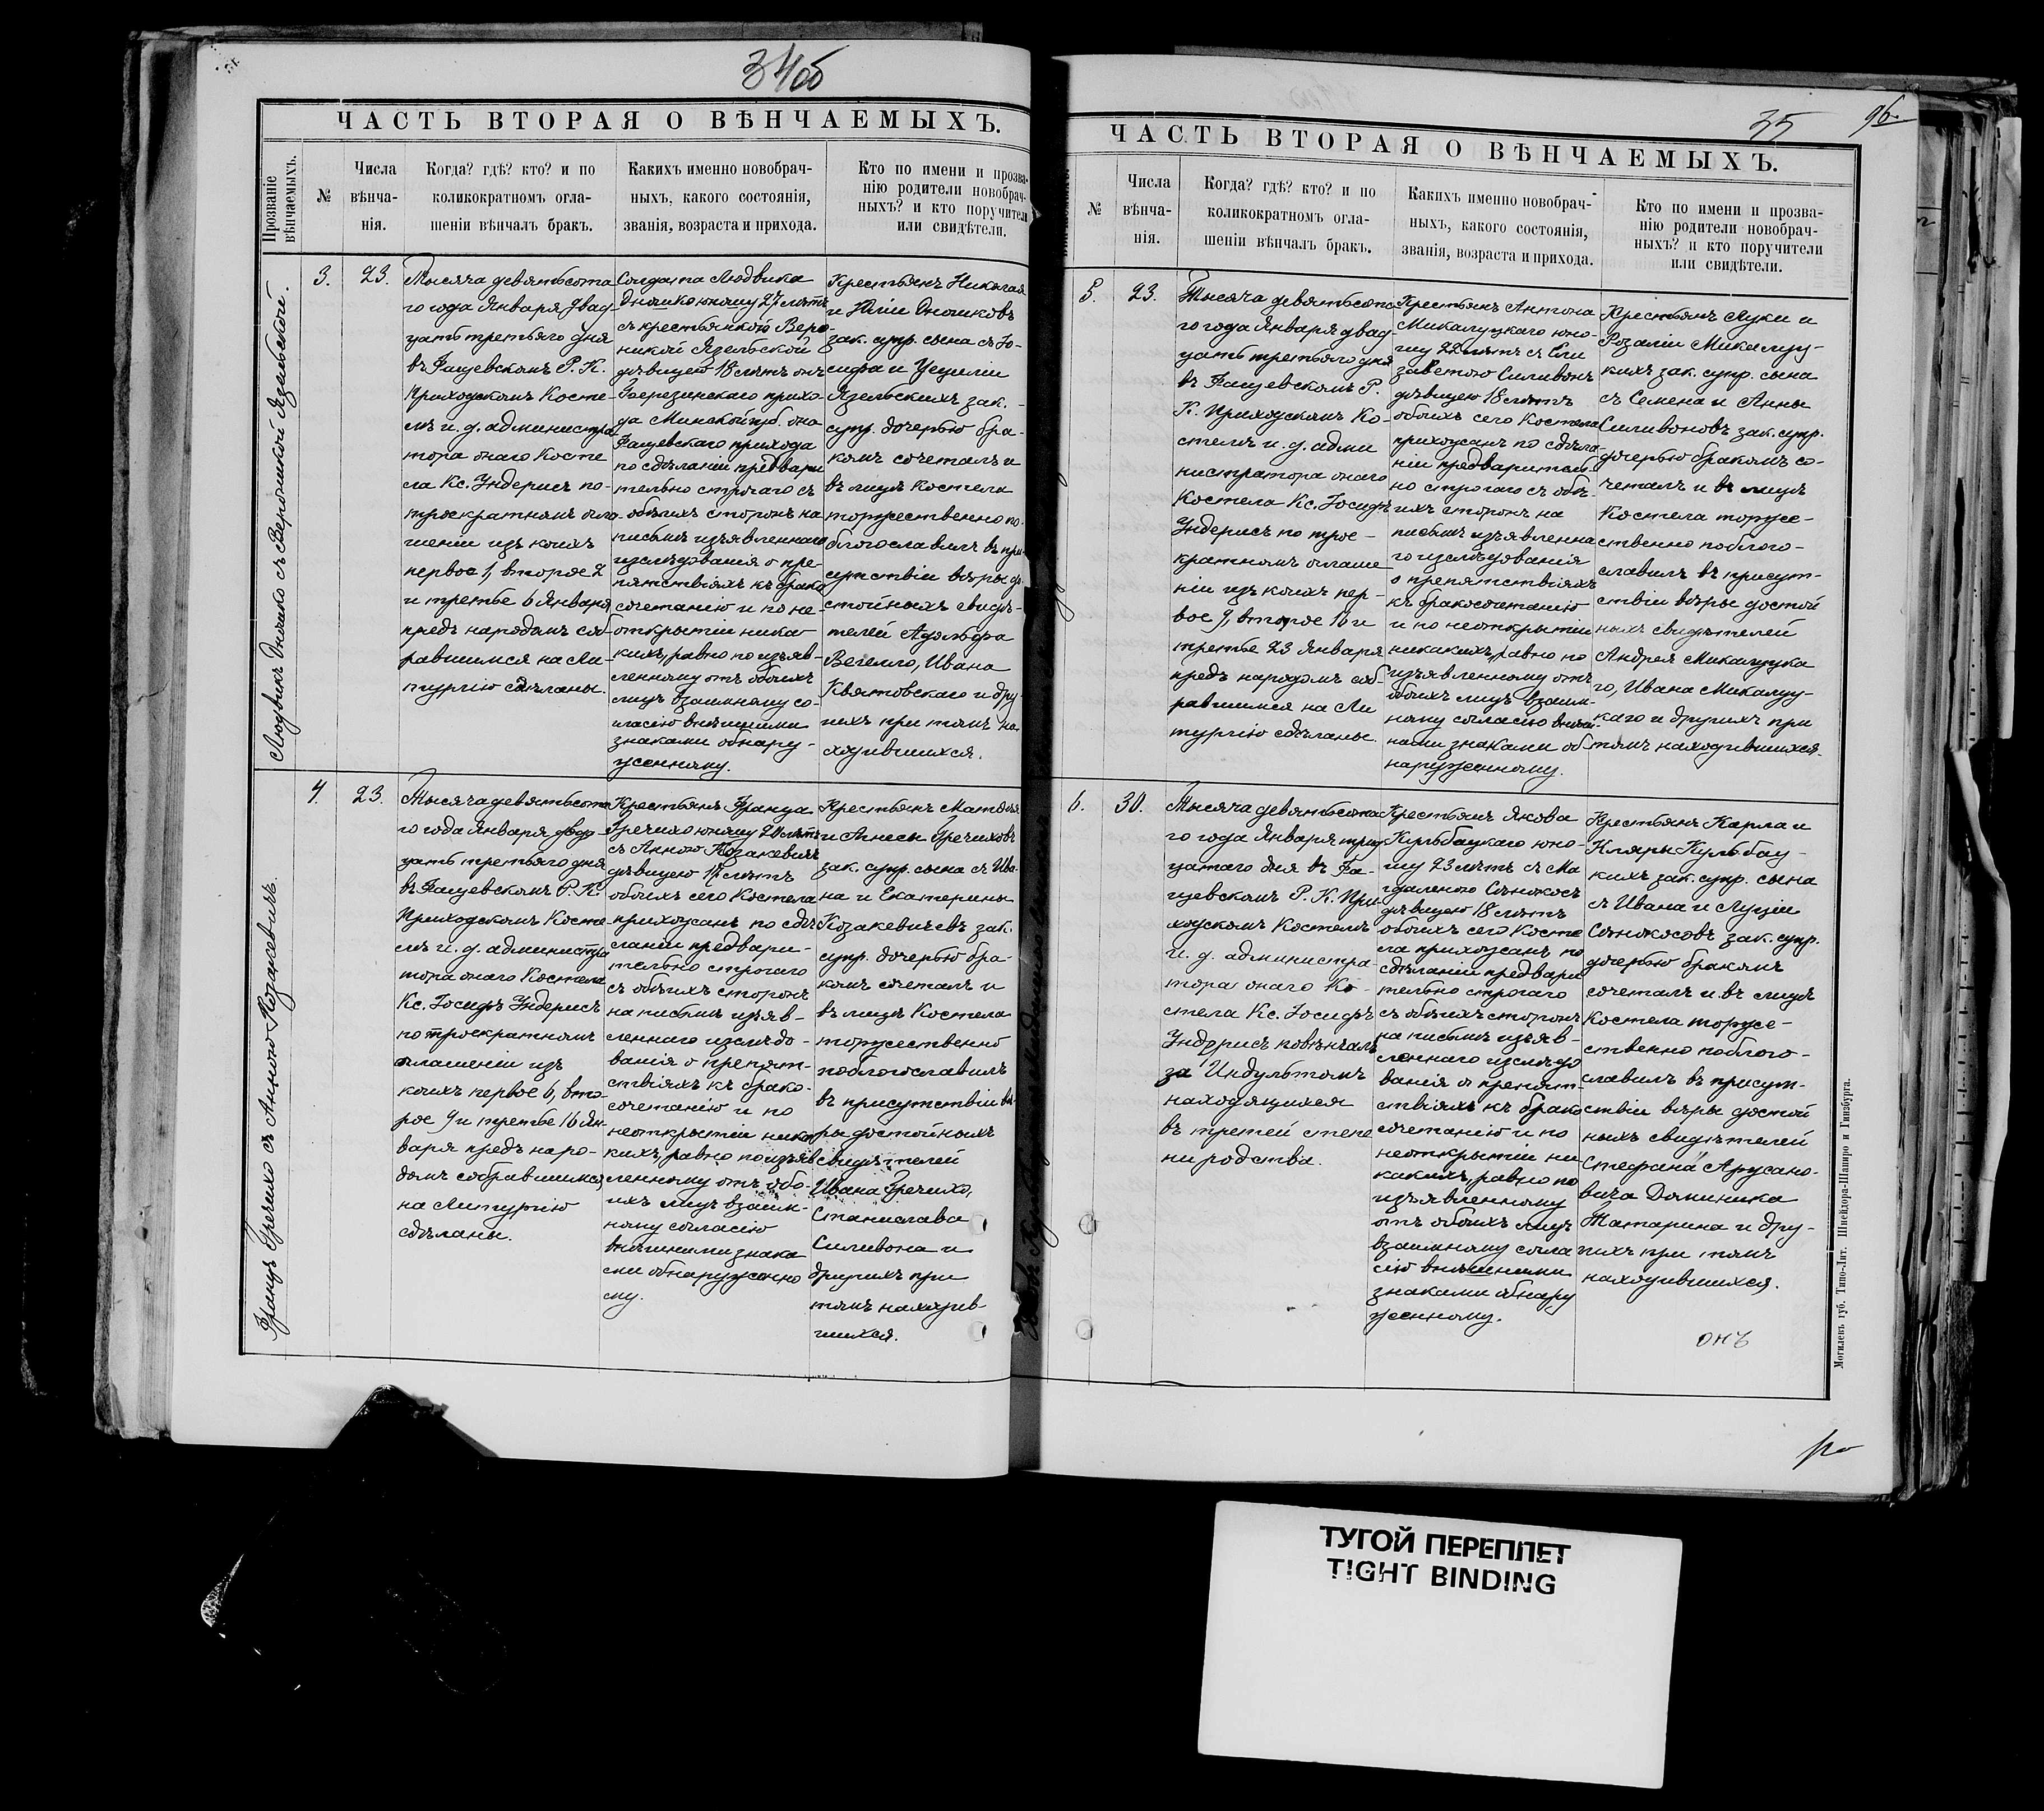 34об
ЧАСТЬ ВТОРАЯ О ВѢНЧАЕМЫХЪ.
Прозваніе
вѣнчаемыхъ.
№
Числа
вѣнча-
нія.
Когда? гдѣ? кто? и по
коликократномъ огла-
шеніи вѣнчалъ бракъ.
Какихъ именно новобрач-
ныхъ, какого состоянія,
званія, возраста и прихода.
Кто по имени и прозва-
нію родители новобрач-
ныхъ? и кто поручители
или свидѣтели.
Людвикъ Дношко съ Вероникой Язельской.
3.
23.
Тысяча девятьсота
го года Января двад
цать третьяго дня
въ Фащевскомъ Р. К.
Приходскомъ Косте-
лѣ и. д. администра
тора онаго Косте
ла Кс. Ундерисъ по-
троекратномъ огла-
шеніи изъ коихъ
первое 1, второе 2
и третье 6 Января
предъ народомъ соб-
равшимся на Ли-
тургію сдѣланы.
Солдата Людвика
Дношко юношу 27 лѣтъ
съ крестьянкою Веро-
никой Язельской
дѣвицею 18 лѣтъ онъ
Березинскаго прихо-
да Минской губ. она
Фащевскаго прихода
по сдѣланіи предвари
тельно строгаго съ
обѣихъ сторонъ на
письмѣ изъявленнаго
изслѣдованія о пре-
пятствіяхъ къ брако
сочетанію и по не-
открытіи ника-
кихъ, равно по изъяв-
ленному отъ обоихъ
лицъ взаимному со-
гласію внѣшними
знаками обнару-
женному.
Крестьянъ Николая
и Юліи Дношковъ
зак. супр. сына съ Іо-
сифа и Цециліи
Язельскихъ зак.
супр. дочерью бра-
комъ сочеталъ и
въ лицѣ костела
торжественно по-
благославилъ въ при-
сутствіи вѣры до-
стойныхъ свидѣ-
телей Адольфа
Вегелло, Ивана
Квятовскаго и дру-
гихъ при томъ на-
ходившихся.
Францъ Гречихо съ Анною Козакевичъ.
4.
23.
Тысяча девятьсота
го года Января двад-
цать третьяго дня
въ Фащевскомъ Р. К.
Приходскомъ Косте-
лѣ и. д. администра
тора онаго Костела
Кс. Іосифъ Ундерисъ
по троекратномъ
оглашеніи изъ
коихъ первое 6, вто-
рое 9 и третье 16 Ян-
варя предъ наро-
домъ собравшимся
на Литургію
сдѣланы.
Крестьянъ Франца
Гречихо юношу 20 лѣтъ
съ Анною Козакевичъ
дѣвицею 17 лѣтъ
обоихъ сего Костела
прихожанъ по сдѣ
ланіи предвари-
тельно строгаго
съ обѣихъ сторонъ
на письмѣ изъяв-
леннаго изслѣдо-
ванія о препят-
ствіяхъ къ брако-
сочетанію и по
неоткрытіи ника
кихъ, равно по изъяв
ленному отъ обо-
ихъ лицъ взаим-
ному согласію
внѣшними знака
ми обнаруженно
му.
Крестьянъ Матвѣя
и Агнесы Гречиховъ
зак. супр. сына съ Ива-
на и Екатерины
Козакевичевъ зак.
супр. дочерью бра-
комъ сочеталъ и
въ лицѣ Костела
торжественно
поблагославилъ
въ присутствіи вѣ-
ры достойныхъ
свидѣтелей
Ивана Гречихо,
Станислава
Силивона и
другихъ при
томъ находив-
шихся.
35
96
ЧАСТЬ ВТОРАЯ О ВѢНЧАЕМЫХЪ.
№
Числа
вѣнча-
нія.
Когда? гдѣ? кто? и по
коликократномъ огла-
шеніи вѣнчалъ бракъ.
Какихъ именно новобрач-
ныхъ, какого состоянія,
званія, возраста и прихода.
Кто по имени и прозва-
нію родители новобрач-
ныхъ? и кто поручители
или свидѣтели.
5.
23.
Тысяча девятьсота
го года Января двад
цать третьяго дня
въ Фащевскомъ Р.
К. Приходскомъ Ко-
стелѣ и. д. адми
нистратора онаго
Костела Кс. Іосифъ
Ундерисъ по трое-
кратномъ оглаше
ніи изъ коихъ пер-
вое 9, второе 16 и
третье 23 Января
предъ народомъ соб-
равшимся на Ли
тургію сдѣланы.
Крестьянъ Антона
Микалуцкаго юно-
шу 22 лѣтъ съ Ели
заветою Силивонъ
дѣвицею 18 лѣтъ
обоихъ сего Костела
прихожанъ по сдѣла-
ніи предваритель-
но строгаго съ обѣ-
ихъ сторонъ на
письмѣ изъявленна
го изслѣдованія
о препятствіяхъ
къ бракосочетанію
и по неоткрытіи
никакихъ, равно по
изъявленному отъ
обоихъ лицъ взаим-
ному согласію внѣш-
ними знаками об
наруженному.
Крестьянъ Луки и
Розаліи Микалуц-
кихъ зак. супр. сына
съ Семена и Анны
Силивоновъ зак. супр.
дочерью бракомъ со-
четалъ и въ лицѣ
Костела торже-
ственно поблаго-
славилъ въ присут-
ствіи вѣры достой
ныхъ свидѣтелей
Андрея Микалуцка
го, Ивана Микалуц-
каго и другихъ при
томъ находившихся.
6.
30.
Тысяча девятьсота
го года Января трид
цатаго дня въ Фа-
щевскомъ Р. К. При-
ходскомъ Костелѣ
и. д. администра-
тора онаго Ко-
стела Кс. Іосифъ
Ундерисъ повѣнчалъ
за Индультомъ
находящихся
въ третей степе
ни родства.
Крестьянъ Якова
Кульбацкаго юно-
шу 23 лѣтъ съ Ма
гдаленою Сѣнокосъ
дѣвицею 18 лѣтъ
обоихъ сего Косте
ла прихожанъ по
сдѣланіи предвари
тельно строгаго
съ обѣихъ сторонъ
на письмѣ изъяв-
леннаго изслѣдо
ванія о препят-
ствіяхъ къ брако
сочетанію и по
неоткрытіи ни
какихъ, равно по
изъявленному
отъ обоихъ лицъ
взаимному согла
сію внѣшними
знаками обнару
женному.
Крестьянъ Карла и
Кляры Кульбац-
кихъ зак. супр. сына
съ Ивана и Луціи
Сѣнокосовъ зак. супр.
дочерью бракомъ
сочеталъ и въ лицѣ
Костела торже-
ственно поблаго-
славилъ въ присут-
ствіи вѣры достой
ныхъ свидѣтелей
Стефана Арусано-
вича Доминика
Татарина и дру-
гихъ при томъ
находившихся.
онъ
Могилевъ губ. Типо-Лит. Шнейдора-Шапиро и Гинзбурга.
ТУГОЙ ПЕРЕПЛЕТ
TIGHT BINDING